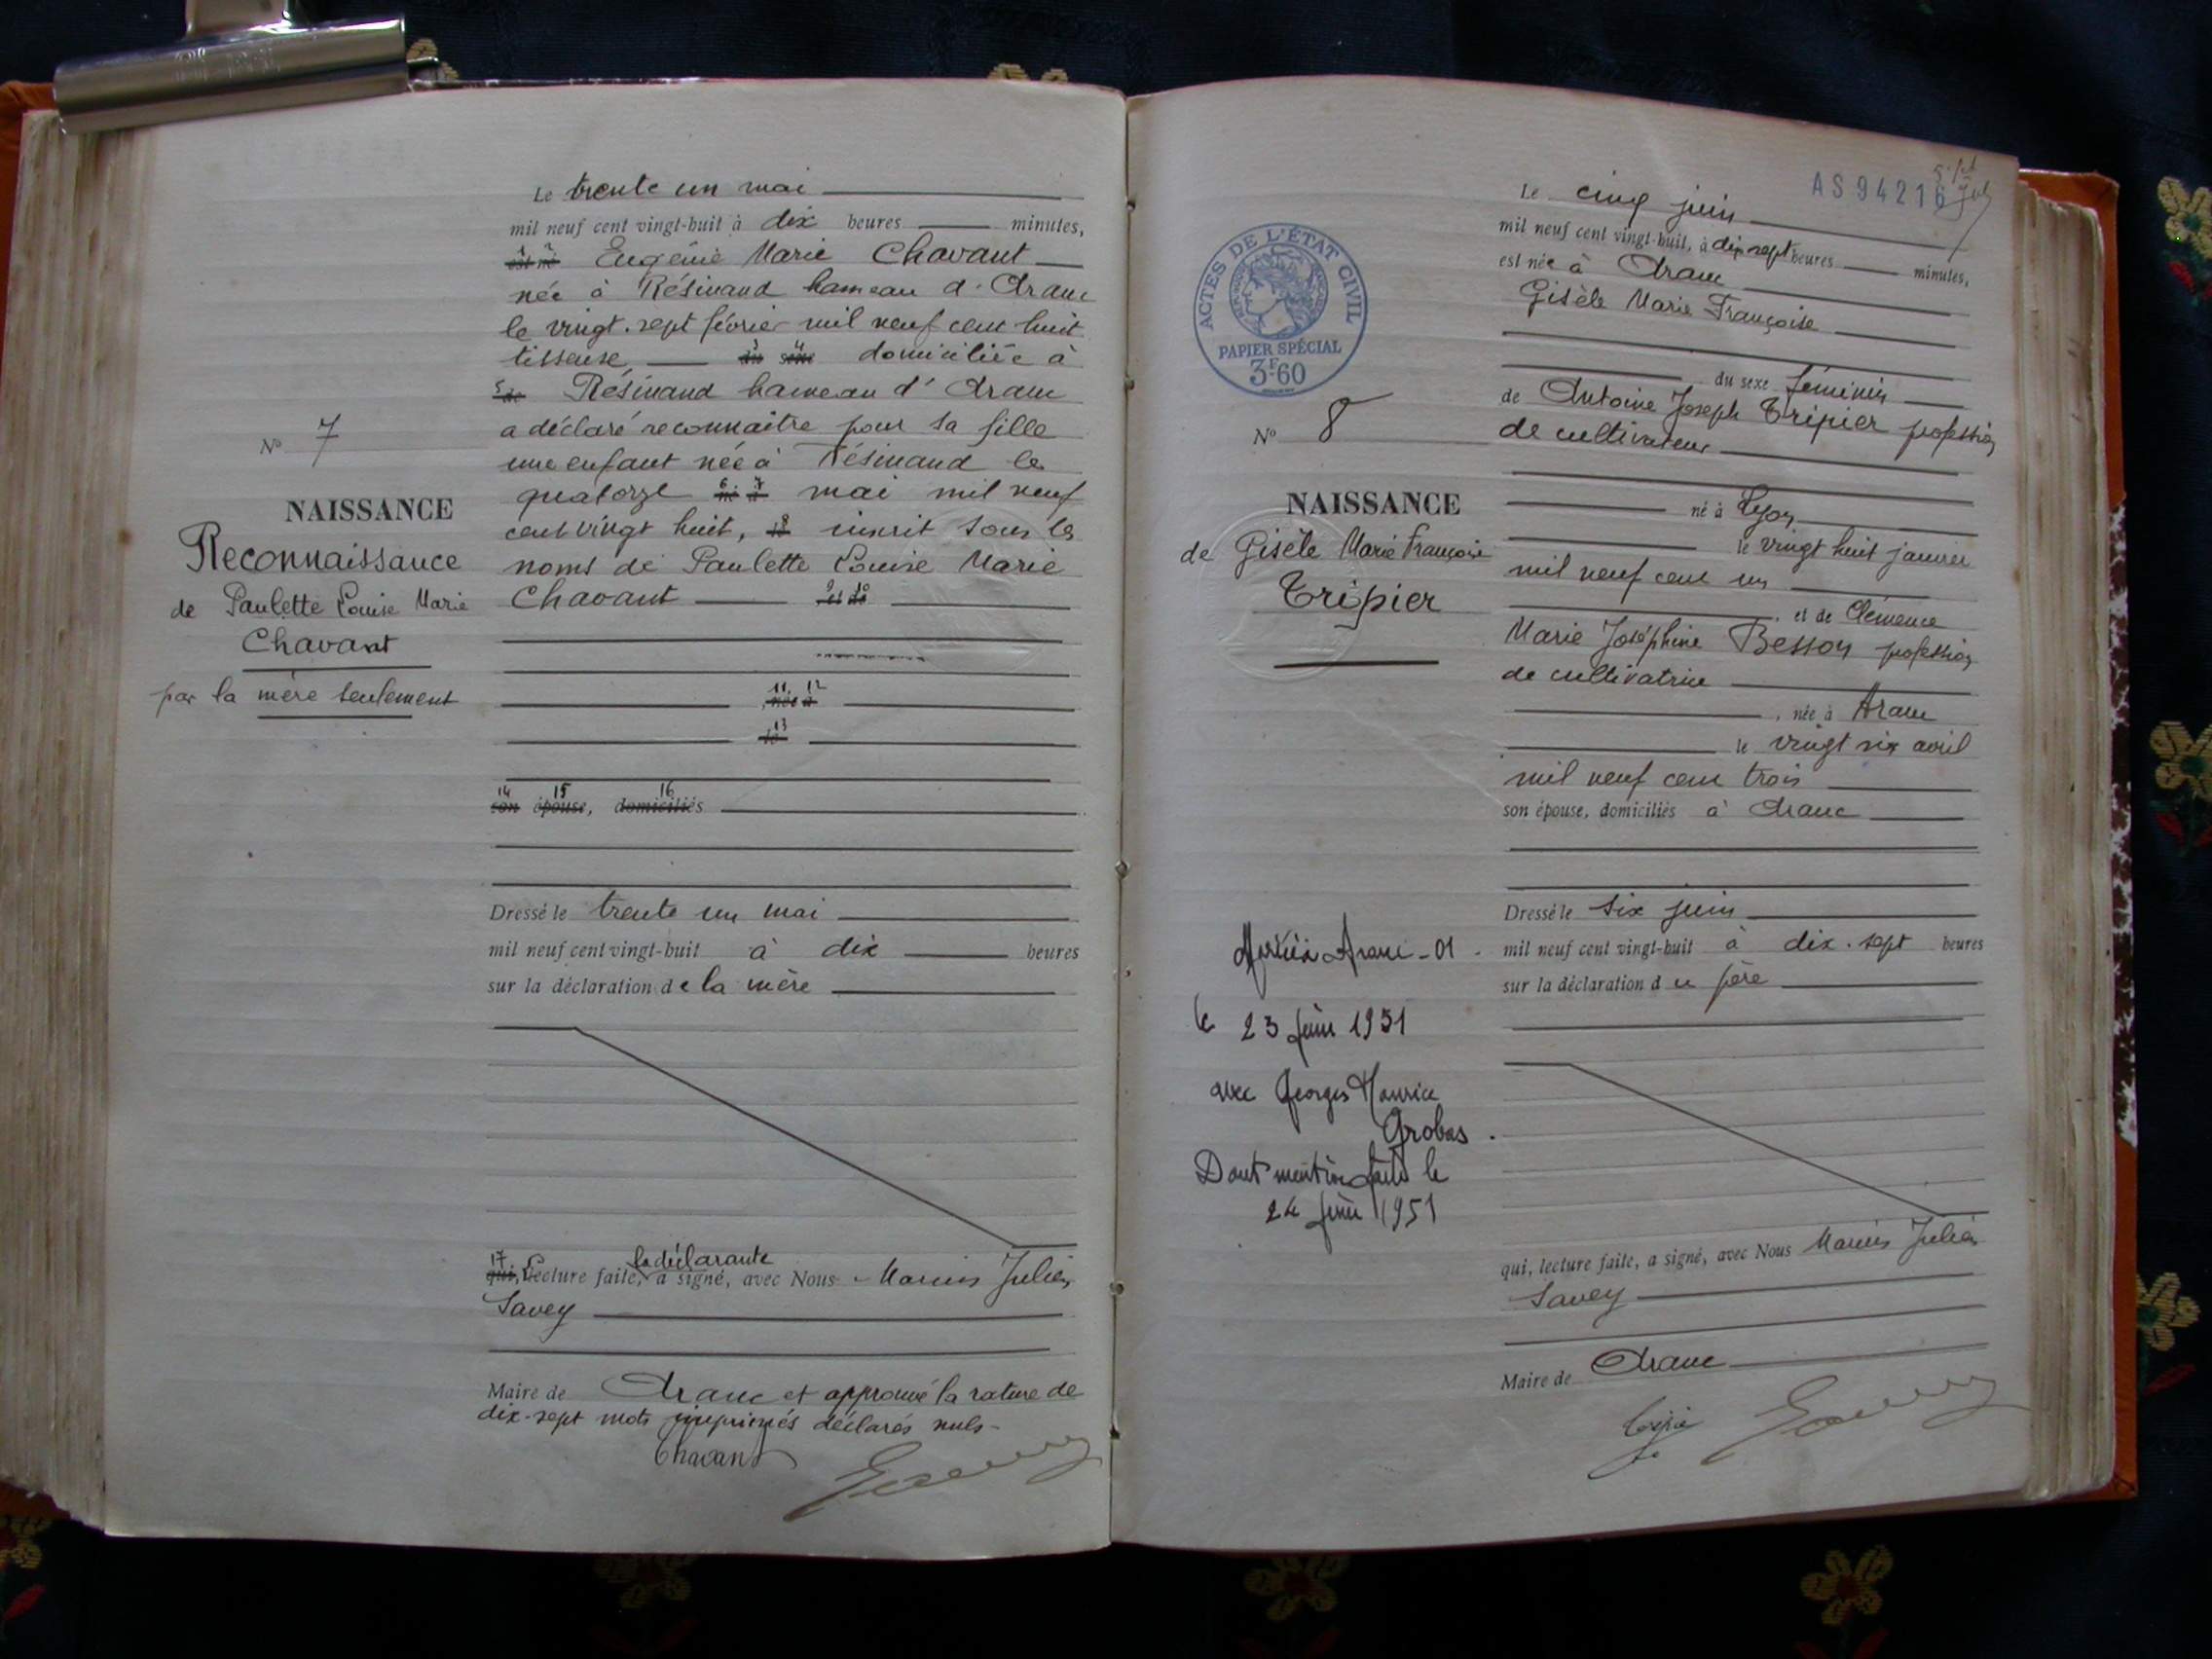 N° 7
NAISSANCE
Reconnaissance
de Paulette Louise Marie
Chavant
par la mère seulement
Le trente un mai
mil neuf cent vingt-huit à dix heures minutes,
1 2
est né Eugénie Marie Chavant
née à Résinand hameau d'Aranc
le vingt-sept février mil neuf cent huit
tisseuse du sexe domiciliée à
3 4
5 de Résinand hameau d'Aranc
a déclaré reconnaître pour sa fille
une enfant née à Résinand le
quatorze né à mai mil neuf
6 7
cent vingt huit, le inscrit sous les
8
noms de Paulette Louise Marie
Chavant et de
9 10
11 12
, née à
13
le
14 15 16
son épouse, domiciliés
Dressé le trente un mai
mil neuf cent vingt-huit à dix heures
sur la déclaration de la mère
17 la déclarante
qui, Lecture faite, a signé, avec Nous Marius Julien
Savey
Maire de Aranc et approuvé la rature de
dix-sept mots imprimés déclarés nuls-
Chavant
Savey
AS94216
ACTES DE L'ÉTAT CIVIL
PAPIER SPÉCIAL
3F60
N° 8
NAISSANCE
de Gisèle Marie Françoise
Tripier
Le cinq juin
mil neuf cent vingt-huit, à dix-sept heures minutes,
est née à Aranc
Gisèle Marie Françoise
du sexe féminin
de Antoine Joseph Tripier profession
de cultivateur
né à Lyon
le vingt huit janvier
mil neuf cent un
et de Clémence
Marie Joséphine Besson profession
de cultivatrice
, née à Aranc
le vingt six avril
mil neuf cent trois
son épouse, domiciliés à Aranc
Dressé le six juin
mil neuf cent vingt-huit à dix-sept heures
sur la déclaration du père
Aranc-01
le 23 juin 1951
avec Georges Maurice
Grobas.
Dont mention faite le
24 juin 1951
qui, lecture faite, a signé, avec Nous Marius Julien
Savey
Maire de Aranc
Tripier
Savey